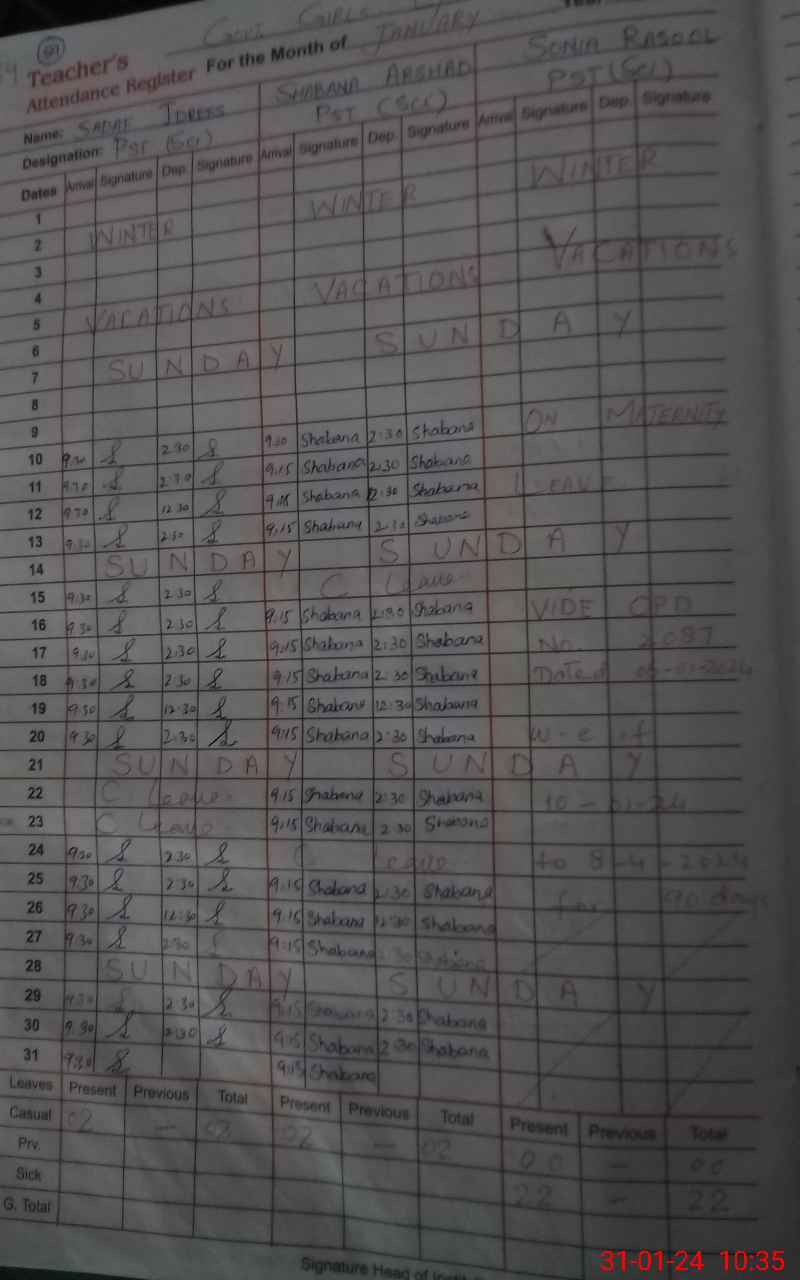 Govt Girls
Teacher's
Attendance Register For the Month of JANUARY
Name: SADAF IDREES SHABANA ARSHAD SONIA RASOOL
Designation: PST (Sci) PST (Sci) PST (Sci)
Dates Arrival Signature Dep. Signature Arrival Signature Dep. Signature Arrival Signature Dep. Signature
1
2 WINTER WINTER WINTER
3
4
5 VACATIONS VACATIONS VACATIONS
6
7 SUNDAY SUNDAY
8
9
10 2:30 Shabana 2:30 Shabana ON MATERNITY
11 9:15 Shabana 2:30 Shabana
12 12:30 9:15 Shabana 2:30 Shabana LEAVE
13 9:30 2:30 9:15 Shabana 2:30 Shabana
14 SUNDAY SUNDAY
15 9:30 2:30 C Leave
16 9:30 2:30 9:15 Shabana 2:30 Shabana VIDE OPD
17 9:30 2:30 9:15 Shabana 2:30 Shabana No. 2087
18 9:30 2:30 9:15 Shabana 2:30 Shabana Dated
19 9:30 12:30 9:15 Shabana 12:30 Shabana
20 9:30 2:30 9:15 Shabana 2:30 Shabana w.e.f
21 SUNDAY SUNDAY
22 C Leave 9:15 Shabana 2:30 Shabana 10-01-24
23 C Leave 9:15 Shabana 2:30 Shabana
24 9:30 2:30 C Leave to 8-4-2024
25 9:30 2:30 9:15 Shabana 2:30 Shabana for 90 days
26 9:30 12:30 9:15 Shabana 12:30 Shabana
27 9:30 2:30 9:15 Shabana 2:30 Shabana
28 SUNDAY SUNDAY
29 9:30 2:30 9:15 Shabana 2:30 Shabana
30 9:30 2:30 9:15 Shabana 2:30 Shabana
31 9:30 9:15 Shabana
Leaves Present Previous Total Present Previous Total Present Previous Total
Casual 02 — 02 02 — 02 00 — 00
Prv. 22 — 22
Sick
G. Total
Signature Head of
31-01-24 10:35